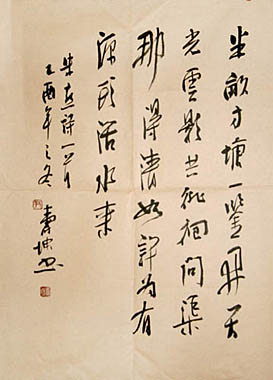 半畝方塘一鑒開天
光雲影共徘徊問渠
那得清如許為有
源頭活水来
朱熹詩一首
乙酉年之冬